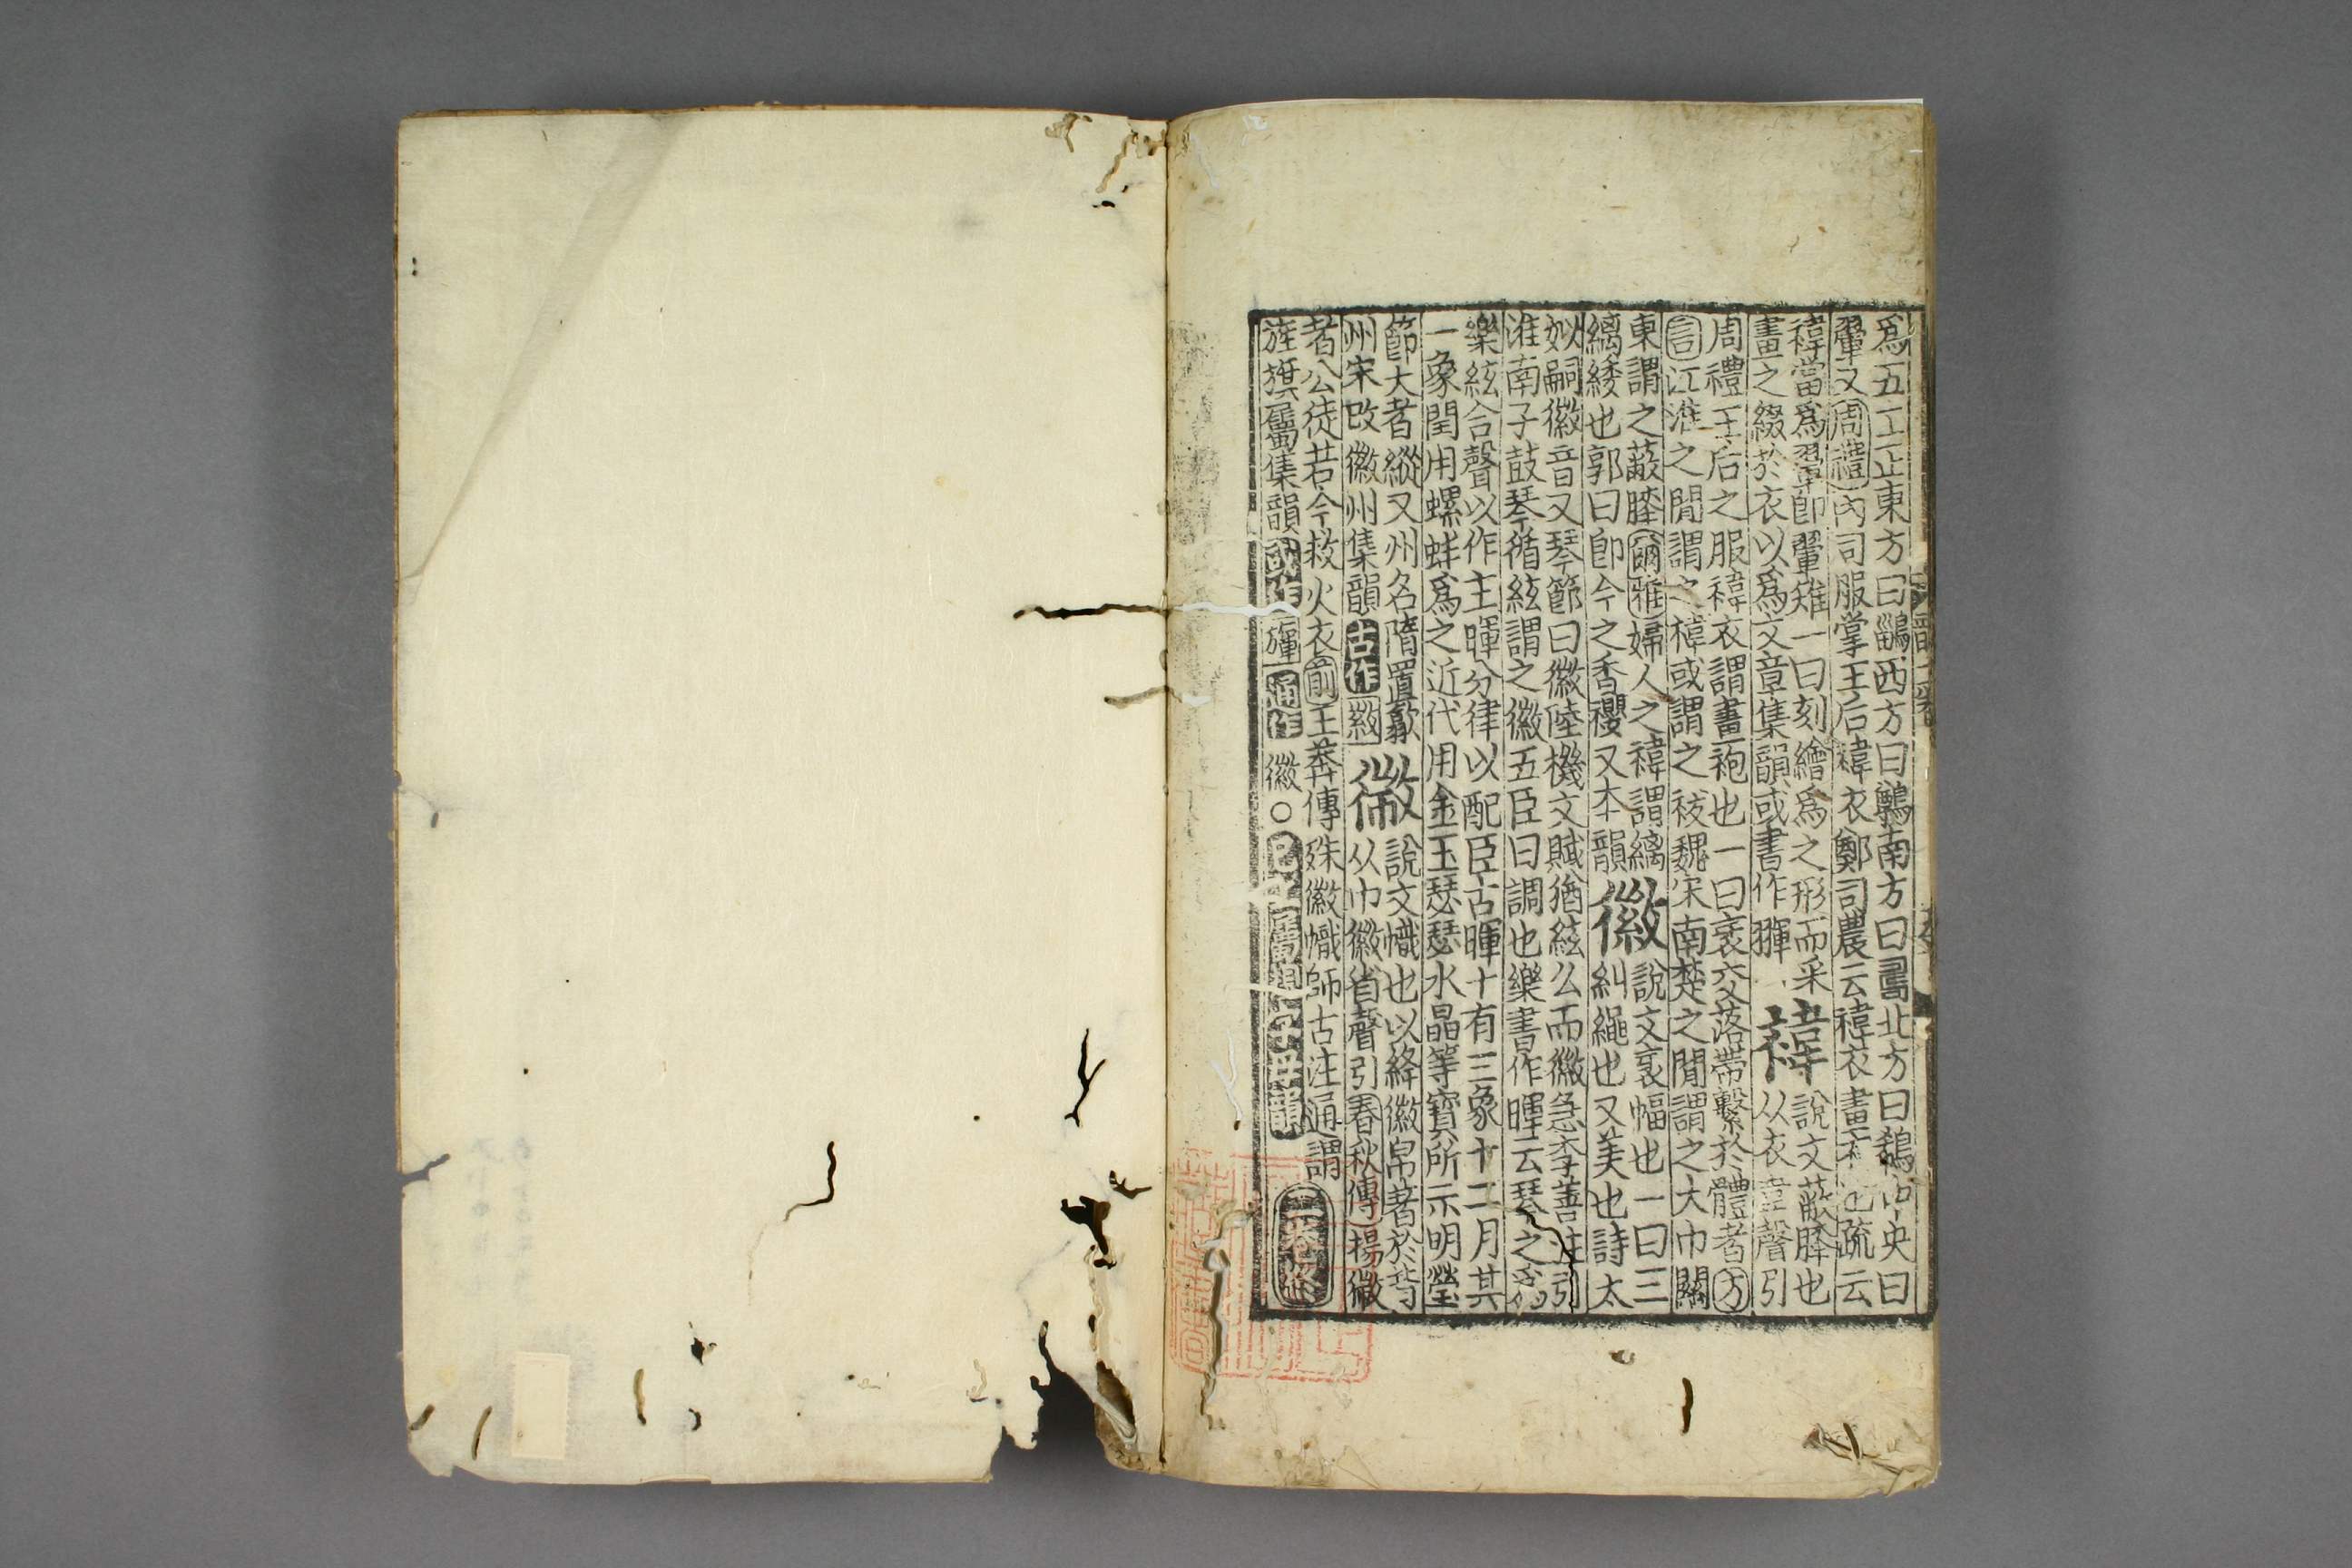 爲五工正東方曰鶅西方曰鷷南方曰翟北方曰鵗中央曰
翬又周禮內司服掌王后褘衣鄭司農云褘衣畫衣也疏云
褘當爲翬卽翬雉一曰刻繒爲之形而采
畫之綴於衣以爲文章集韻或書作㩈
褘
說文蔽膝也
从衣韋聲引
周禮王后之服褘衣謂畫袍也一曰衺交落帶繫於體者方
言江淮之間謂之褘或謂之袚魏宋南楚之間謂之大巾關
東謂之蔽膝爾雅婦人之褘謂縭
縭緌也郭曰卽今之香纓又本韻
徽
說文衺幅也一曰三
糾繩也又美也詩太
姒嗣徽音又琴節曰徽陸機文賦猶絃么而徽急李善注引
淮南子鼓琴循絃謂之徽五臣曰調也樂書作暉云琴之爲
樂絃合聲以作主暉分律以配臣古暉十有三象十二月其
一象閏用螺蚌爲之近代用金玉瑟瑟水晶等寶所示明瑩
節大者縱又州名隋置歙
州宋改徽州集韻古作䋿
㣲
說文幟也以絳徽帛著於背
从巾徽省聲引春秋傳揚徽
者公徒若今救火衣前王莽傳殊徽幟師古注通謂
旌旗屬集韻或作㫎通作徽○已上屬規字母韻